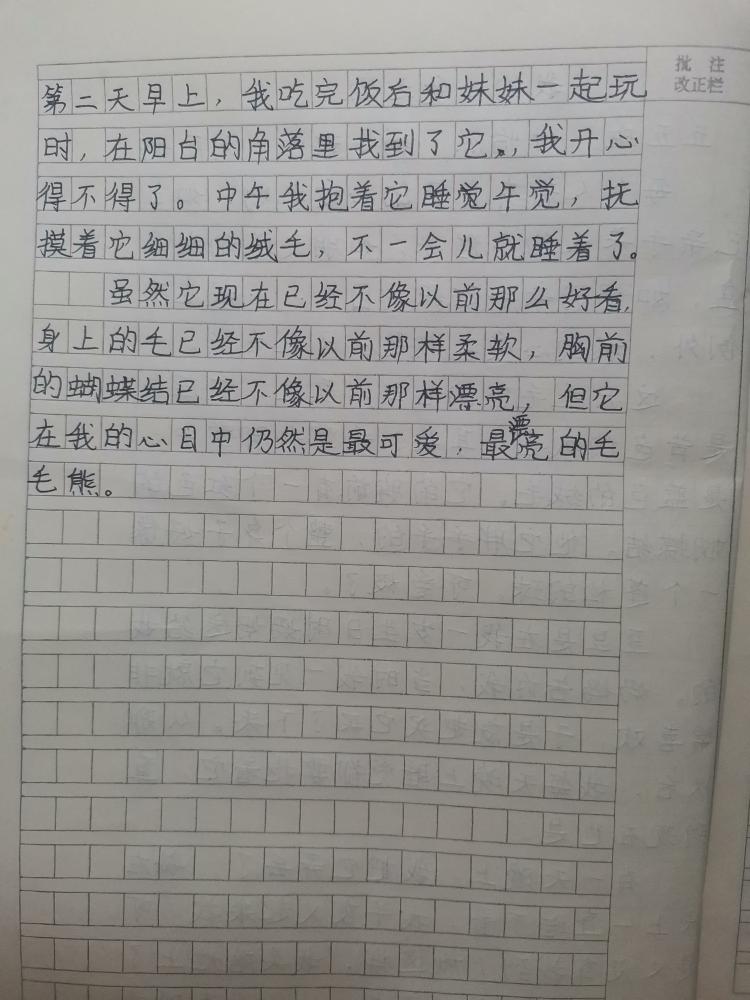 批 注
改正栏
第二天早上，我吃完饭后和妹妹一起玩
时，在阳台的角落里找到了它，我开心
得不得了。中午我抱着它睡觉午觉，抚
摸着它细细的绒毛，不一会儿就睡着了。
虽然它现在已经不像以前那么好看，
身上的毛已经不像以前那样柔软，胸前
的蝴蝶结已经不像以前那样漂亮，但它
在我的心目中仍然是最可爱，最漂亮的毛
毛熊。